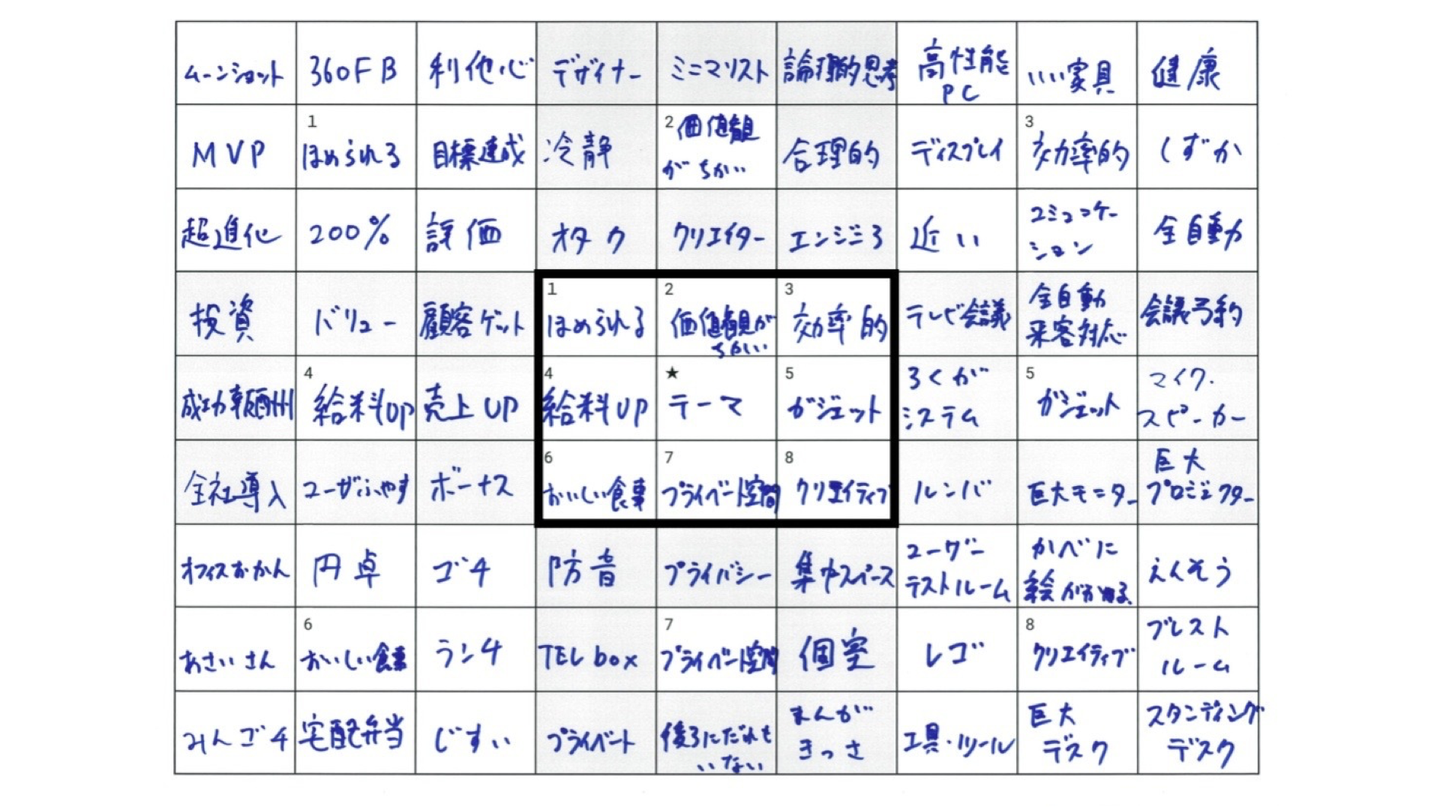 ムーンショット 360FB 利他心 デザイナー ミニマリスト 論理的思考 高性能PC いい家具 健康
MVP 1 ほめられる 目標達成 冷静 2 価値観がちかい 合理的 ディスプレイ 3 効率的 しずか
超進化 200% 評価 オタク クリエイター エンジニア 近い コミュニケーション 全自動
投資 バリュー 顧客ゲット 1 ほめられる 2 価値観がちかい 3 効率的 テレビ会議 全自動来客対応 会議予約
成功報酬 4 給料UP 売上UP 4 給料UP ★ テーマ 5 ガジェット ろくがシステム 5 ガジェット マイク・スピーカー
全社導入 ユーザふやす ボーナス 6 おいしい食事 7 プライベート空間 8 クリエイティブ ルンバ 巨大モニター 巨大プロジェクター
オフィスおかん 円卓 ゴチ 防音 プライバシー 集中スペース ユーザーテストルーム かべに絵がかける えんそう
あさいさん 6 おいしい食事 ランチ TEL box 7 プライベート空間 個室 レゴ 8 クリエイティブ ブレストルーム
みんゴチ 宅配弁当 じすい プライベート 後ろにだれもいない まんがきっさ 工具・ツール 巨大デスク スタンディングデスク